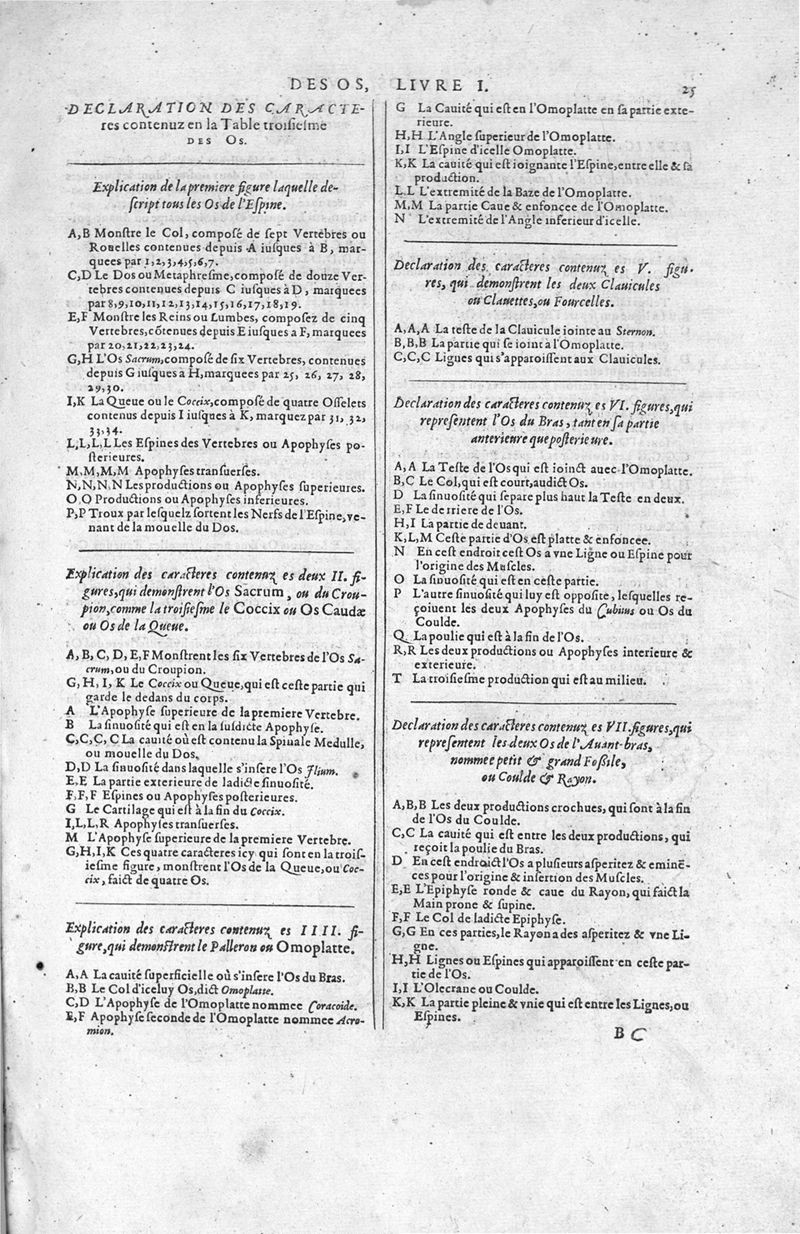 DES OS, LIVRE I. 25
DECLARATION DES CARACTE-
res contenuz en la Table troisiesme
DES OS.
Explication de la premiere figure laquelle de-
script tous les Os de l'Espine.
A, B Monstre le Col, composé de sept Vertebres ou
Rouelles contenues depuis A iusques à B, mar-
quees par 1, 2, 3, 4, 5, 6, 7.
C, D Le Dos ou Metaphresme, composé de douze Ver-
tebres contenues depuis C iusques à D, marquees
par 8, 9, 10, 11, 12, 13, 14, 15, 16, 17, 18, 19.
E, F Monstre les Reins ou Lumbes, composez de cinq
Vertebres, cōtenues depuis E iusques a F, marquees
par 20, 21, 22, 23, 24.
G, H L'Os Sacrum, composé de six Vertebres, contenues
depuis G iusques a H, marquees par 25, 26, 27, 28,
29, 30.
I, K La Queue ou le Coccix, composé de quatre Osselets
contenus depuis I iusques à K, marquez par 31, 32,
33, 34.
L, L, L, L Les Espines des Vertebres ou Apophyses po-
sterieures.
M, M, M, M Apophyses transuerses.
N, N, N, N Les productions ou Apophyses superieures.
O, O Productions ou Apophyses inferieures.
P, P Troux par lesquelz sortent les Nerfs de l'Espine, ve-
nant de la mouelle du Dos.
Explication des caracteres contenuz es deux II. fi-
gures, qui demonstrent l'Os Sacrum, ou du Crou-
pion, comme la troisiesme le Coccix ou Os Caudæ
ou Os de la Queue.
A, B, C, D, E, F Monstrent les six Vertebres de l'Os Sa-
crum, ou du Croupion.
G, H, I, K Le Coccix ou Queue, qui est ceste partie qui
garde le dedans du corps.
A L'Apophyse superieure de la premiere Vertebre.
B La sinuosité qui est en la susdicte Apophyse.
C, C, C, C La cauité où est contenu la Spinale Medulle,
ou mouelle du Dos.
D, D La sinuosité dans laquelle s'insere l'Os Ilium.
E, E La partie exterieure de ladicte sinuosité.
F, F, F Espines ou Apophyses posterieures.
G Le Cartilage qui est à la fin du Coccix.
I, L, L, R Apophyses transuerses.
M L'Apophyse superieure de la premiere Vertebre.
G, H, I, K Ces quatre caracteres icy qui sont en la trois-
iesme figure, monstrent l'Os de la Queue, ou Coc-
cix, faict de quatre Os.
Explication des caracteres contenuz es IIII. fi-
gure, qui demonstrent le Palleron ou Omoplatte.
A, A La cauité superficielle où s'insere l'Os du Bras.
B, B Le Col d'iceluy Os, dict Omoplatte.
C, D L'Apophyse de l'Omoplatte nommee Coracoide.
E, F Apophyse seconde de l'Omoplatte nommee Acro-
mion.
G La Cauité qui est en l'Omoplatte en sa partie exte-
rieure.
H, H L'Angle superieur de l'Omoplatte.
I, I L'Espine d'icelle Omoplatte.
K, K La cauité qui est ioignante l'Espine, entre elle & sa
production.
L, L L'extremité de la Baze de l'Omoplatte.
M, M La partie Caue & enfoncee de l'Omoplatte.
N L'extremité de l'Angle inferieur d'icelle.
Declaration des caracteres contenuz es V. figu-
res, qui demonstrent les deux Clauicules
ou Clauettes, ou Fourcelles.
A, A, A La teste de la Clauicule iointe au Sternon.
B, B, B La partie qui se ioint à l'Omoplatte.
C, C, C Lignes qui s'apparoissent aux Clauicules.
Declaration des caracteres contenuz es VI. figures, qui
representent l'Os du Bras, tant en sa partie
anterieure que posterieure.
A, A La Teste de l'Os qui est ioinct auec l'Omoplatte.
B, C Le Col, qui est court, audict Os.
D La sinuosité qui separe plus haut la Teste en deux.
E, F Le derriere de l'Os.
H, I La partie de deuant.
K, L, M Ceste partie d'Os est platte & enfoncee.
N En cest endroit cest Os a vne Ligne ou Espine pour
l'origine des Muscles.
O La sinuosité qui est en ceste partie.
P L'autre sinuosité qui luy est opposite, lesquelles re-
çoiuent les deux Apophyses du Cubitus ou Os du
Coulde.
Q La poulie qui est à la fin de l'Os.
R, R Les deux productions ou Apophyses interieure &
exterieure.
T La troisiesme production qui est au milieu.
Declaration des caracteres contenuz es VII. figures, qui
representent les deux Os de l'Auant-bras,
nommee petit & grand Fossile,
ou Coulde & Rayon.
A, B, B Les deux productions crochues, qui sont à la fin
de l'Os du Coulde.
C, C La cauité qui est entre les deux productions, qui
reçoit la poulie du Bras.
D En cest endroict l'Os a plusieurs asperitez & eminē-
ces pour l'origine & insertion des Muscles.
E, E L'Epiphyse ronde & caue du Rayon, qui faict la
Main prone & supine.
F, F Le Col de ladicte Epiphyse.
G, G En ces parties, le Rayon a des asperitez & vne Li-
gne.
H, H Lignes ou Espines qui apparoissent en ceste par-
tie de l'Os.
I, I L'Olecrane ou Coulde.
K, K La partie pleine & vnie qui est entre les Lignes, ou
Espines.
B C